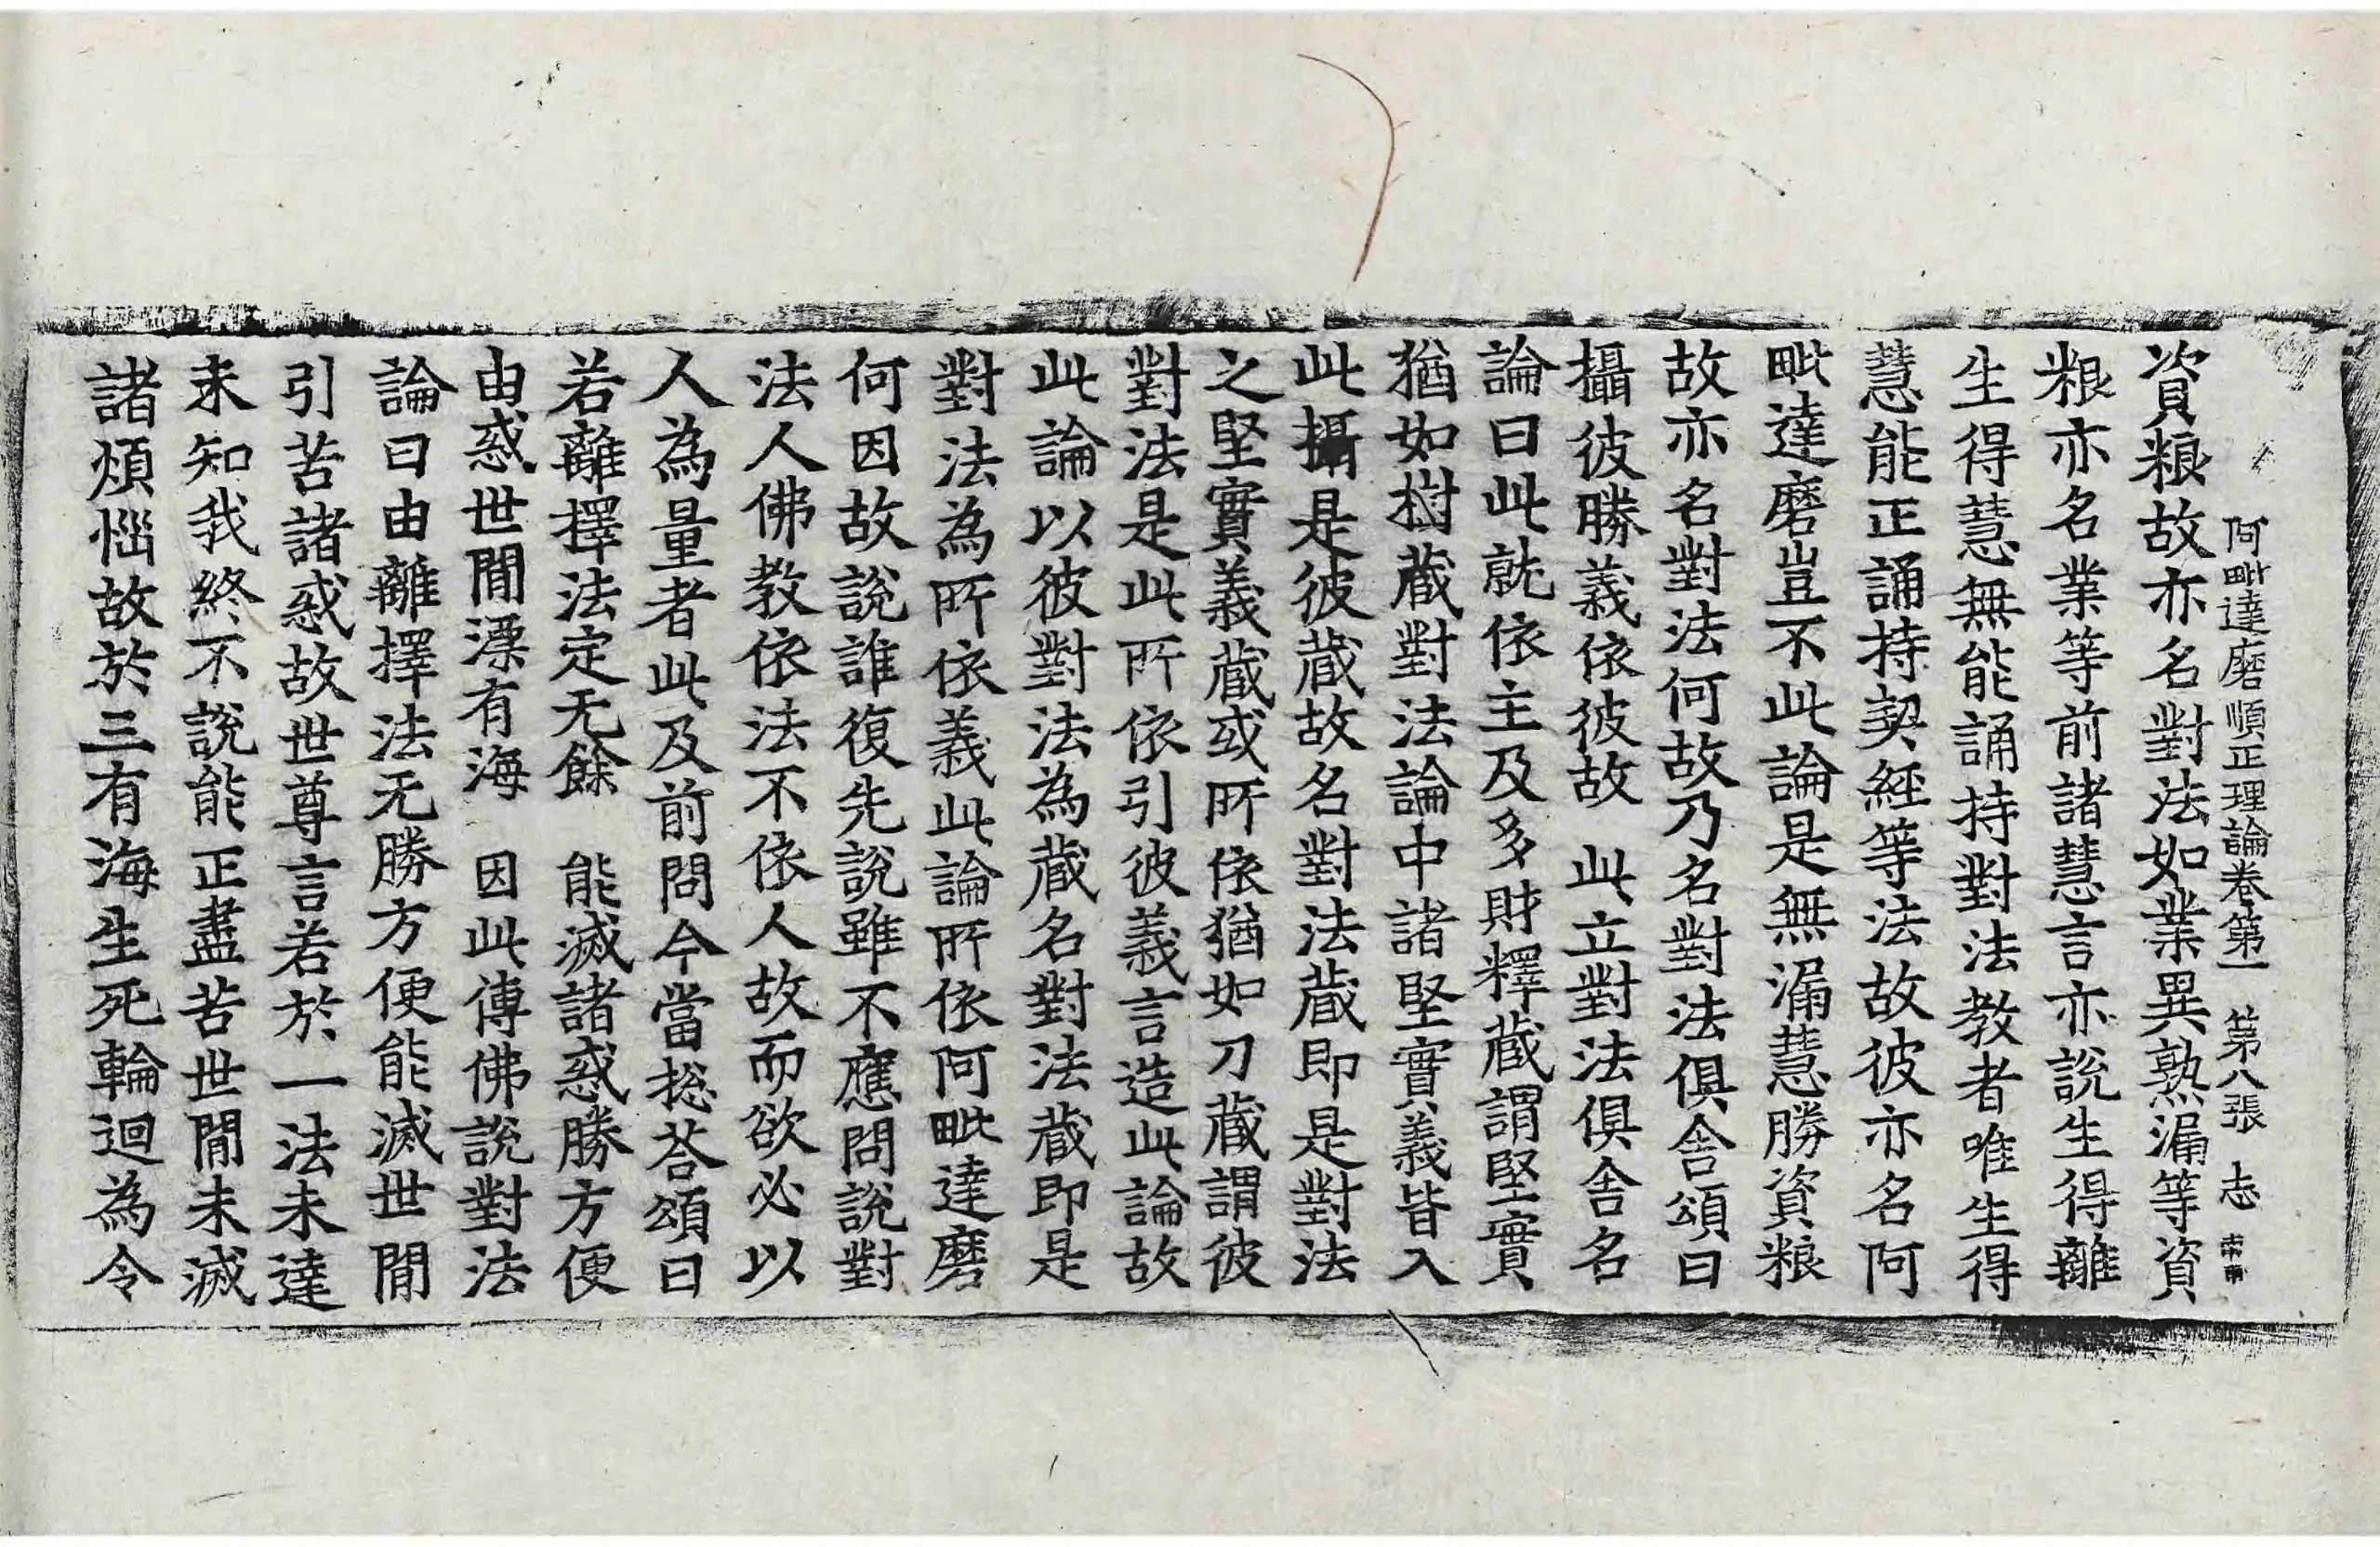 阿毗達磨順正理論卷第一　第八張　志
資粮故亦名對法如業異熟漏等資
粮亦名業等前諸慧言亦說生得離
生得慧無能誦持對法教者唯生得
慧能正誦持契經等法故彼亦名阿
毗達磨豈不此論是無漏慧勝資粮
故亦名對法何故乃名對法俱舍頌曰
攝彼勝義依彼故　此立對法俱舍名
論曰此就依主及多財釋藏謂堅實
猶如樹藏對法論中諸堅實義皆入
此攝是彼藏故名對法藏即是對法
之堅實義藏或所依猶如刀藏謂彼
對法是此所依引彼義言造此論故
此論以彼對法為藏名對法藏即是
對法為所依義此論所依阿毗達磨
何因故說誰復先說雖不應問說對
法人佛教依法不依人故而欲必以
人為量者此及前問今當捴荅頌曰
若離擇法定无餘　能滅諸惑勝方便
由惑世間漂有海　因此傳佛說對法
論曰由離擇法无勝方便能滅世間
引苦諸惑故世尊言若於一法未達
未知我終不說能正盡苦世間未滅
諸煩惱故於三有海生死輪迴為令